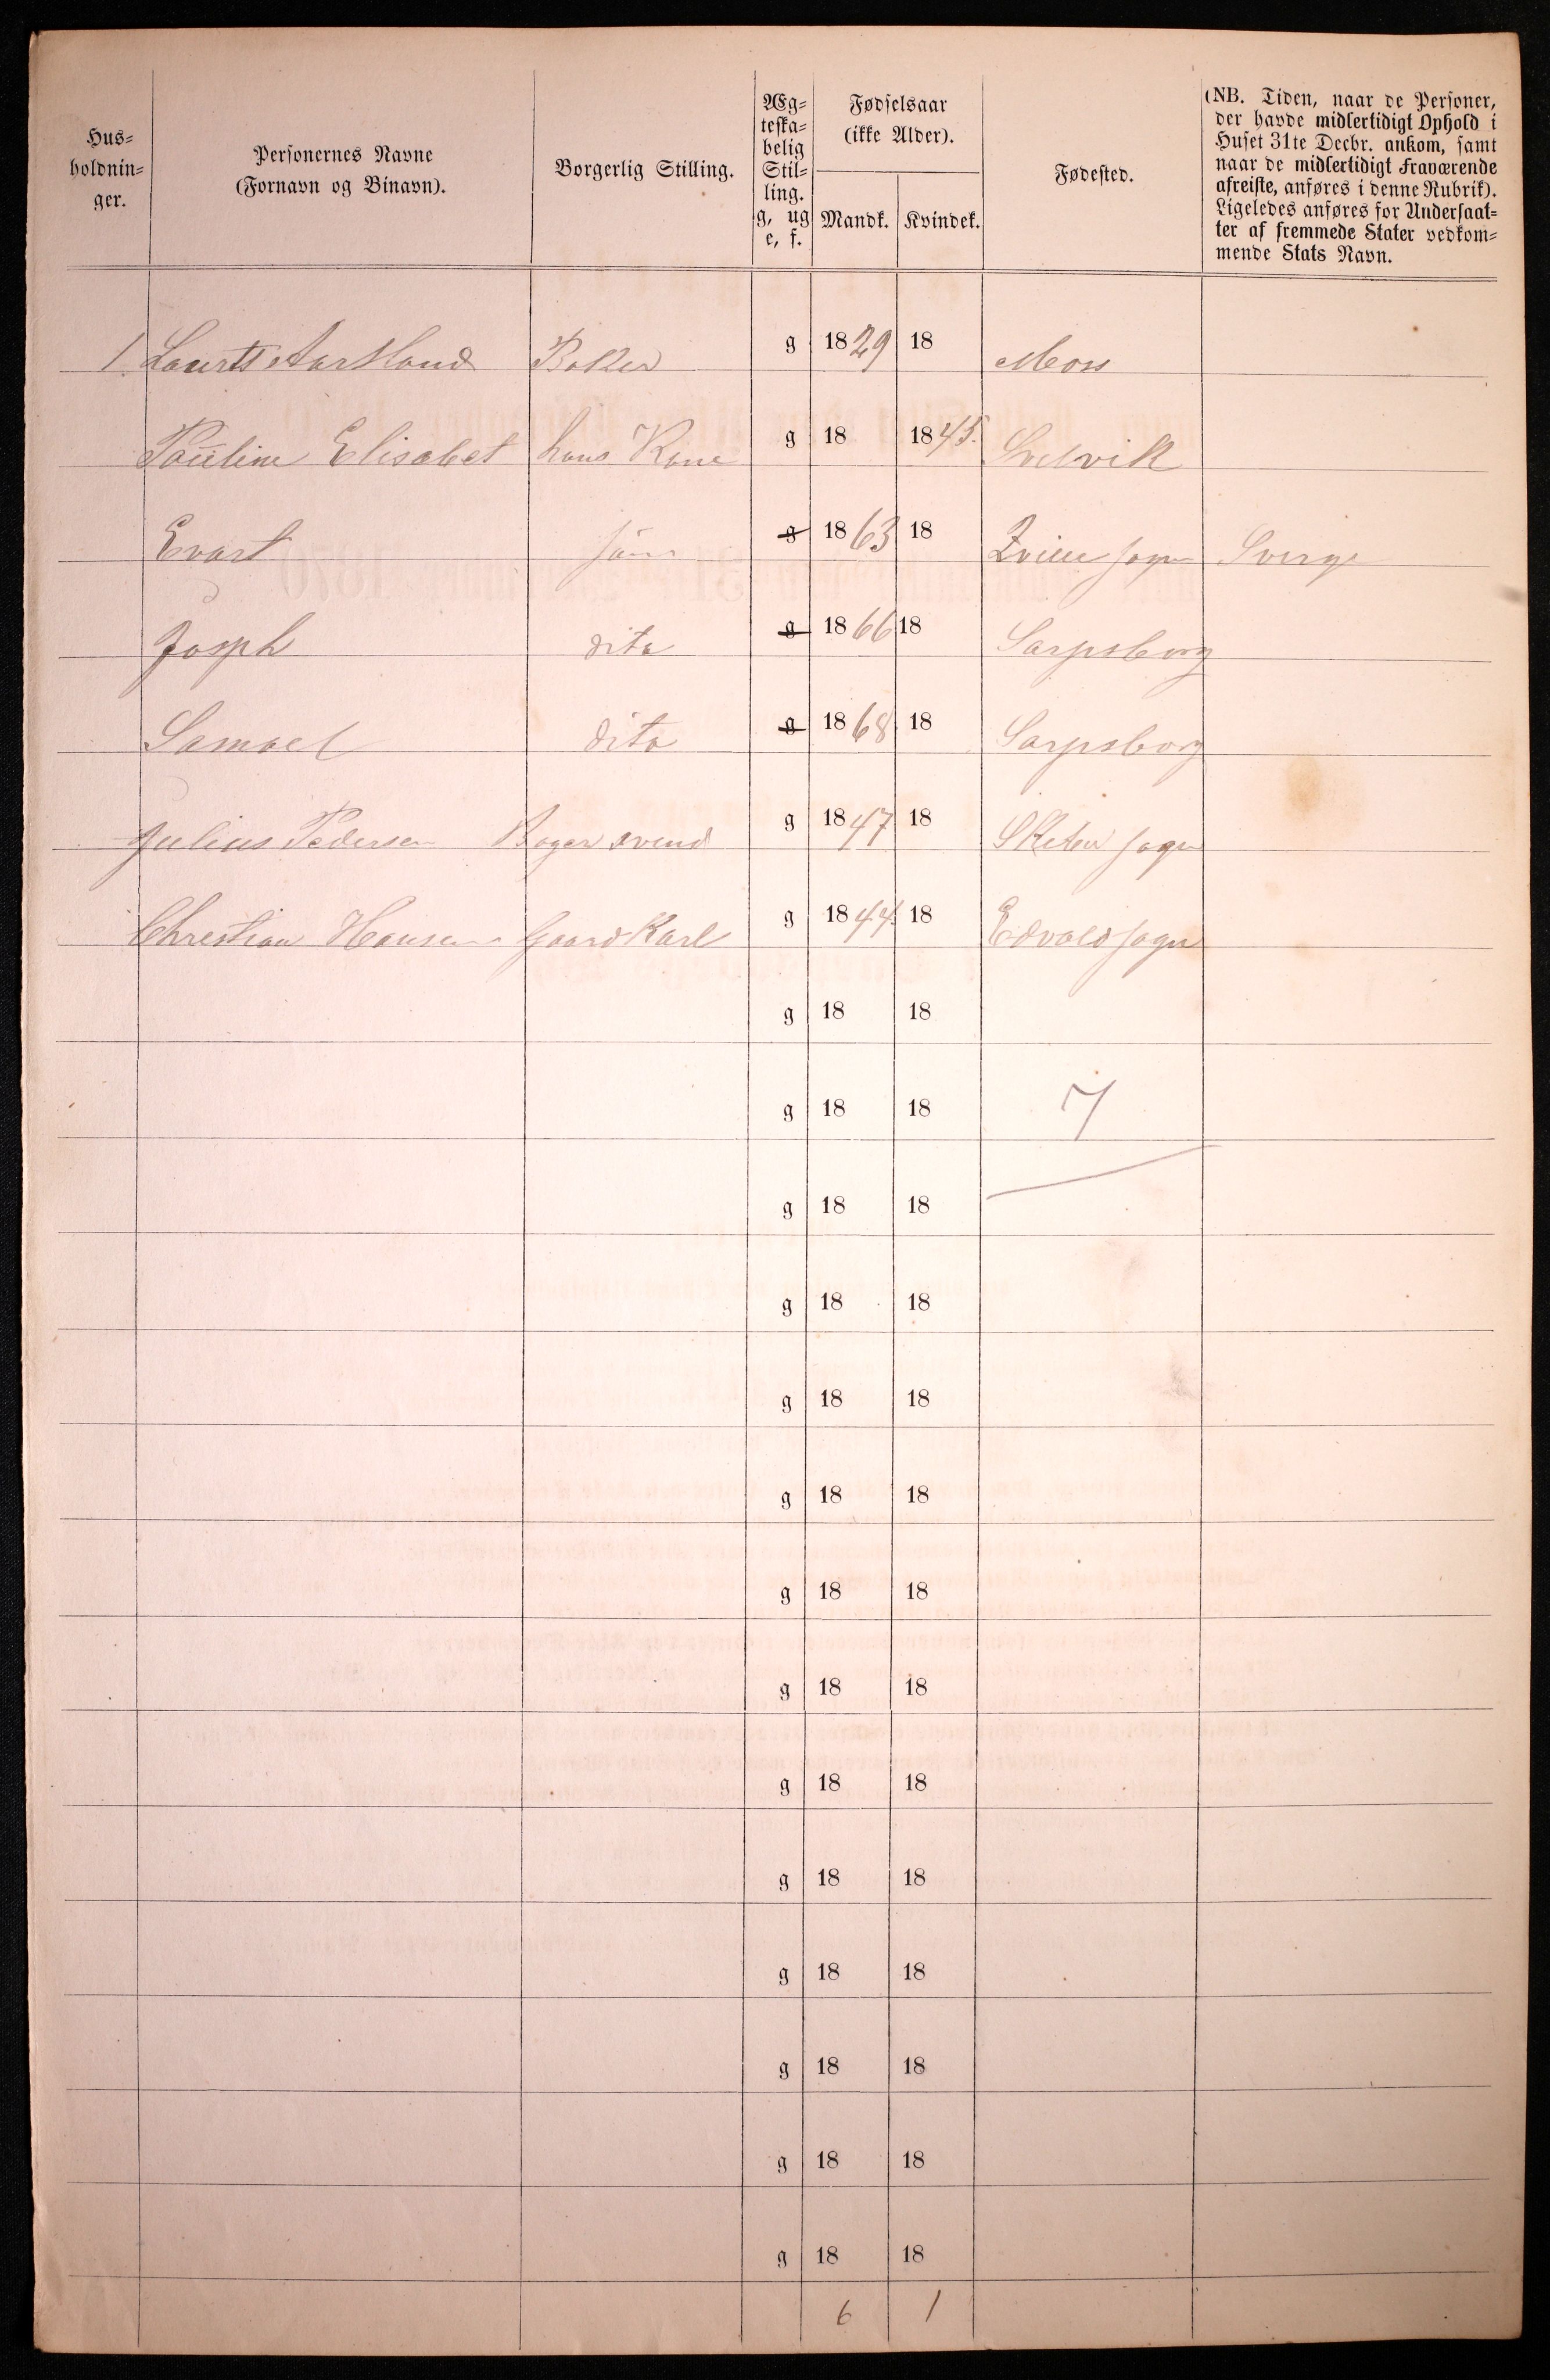 Hus=
holdnin=
ger.
Personernes Navne
(Fornavn og Binavn).
Borgerlig Stilling.
Æg=
teska=
belig
Stil=
ling.
g, ug
e, f.
Fødselsaar
(ikke Alder).
Mandk. Kvindek.
Fødested.
(NB. Tiden, naar de Personer,
der havde midlertidigt Ophold i
Huset 31te Decbr. ankom, samt
naar de midlertidigt Fraværende
afreiste, anføres i denne Rubrik).
Ligeledes anføres for Undersaat=
ter af fremmede Stater vedkom=
mende Stats Navn.
1 Laurits Baker g 1829 18 Moss
Pauline Elisabet hans Kone g 18 1845. Svelvik
Evart g 1863 18 sogn Sverge
Joseph dito g 1866 18 Sarpsborg
Samoel dito g 1868 18 Sarpsborg
Julius Pedersen Bager svend g 1847 18 sogn
Christian Hansen Gaardkarl g 1844. 18 Edvold sogn
g 18 18
g 18 18 7
g 18 18
g 18 18
g 18 18
g 18 18
g 18 18
g 18 18
g 18 18
g 18 18
g 18 18
g 18 18
g 18 18
g 18 18
6 1